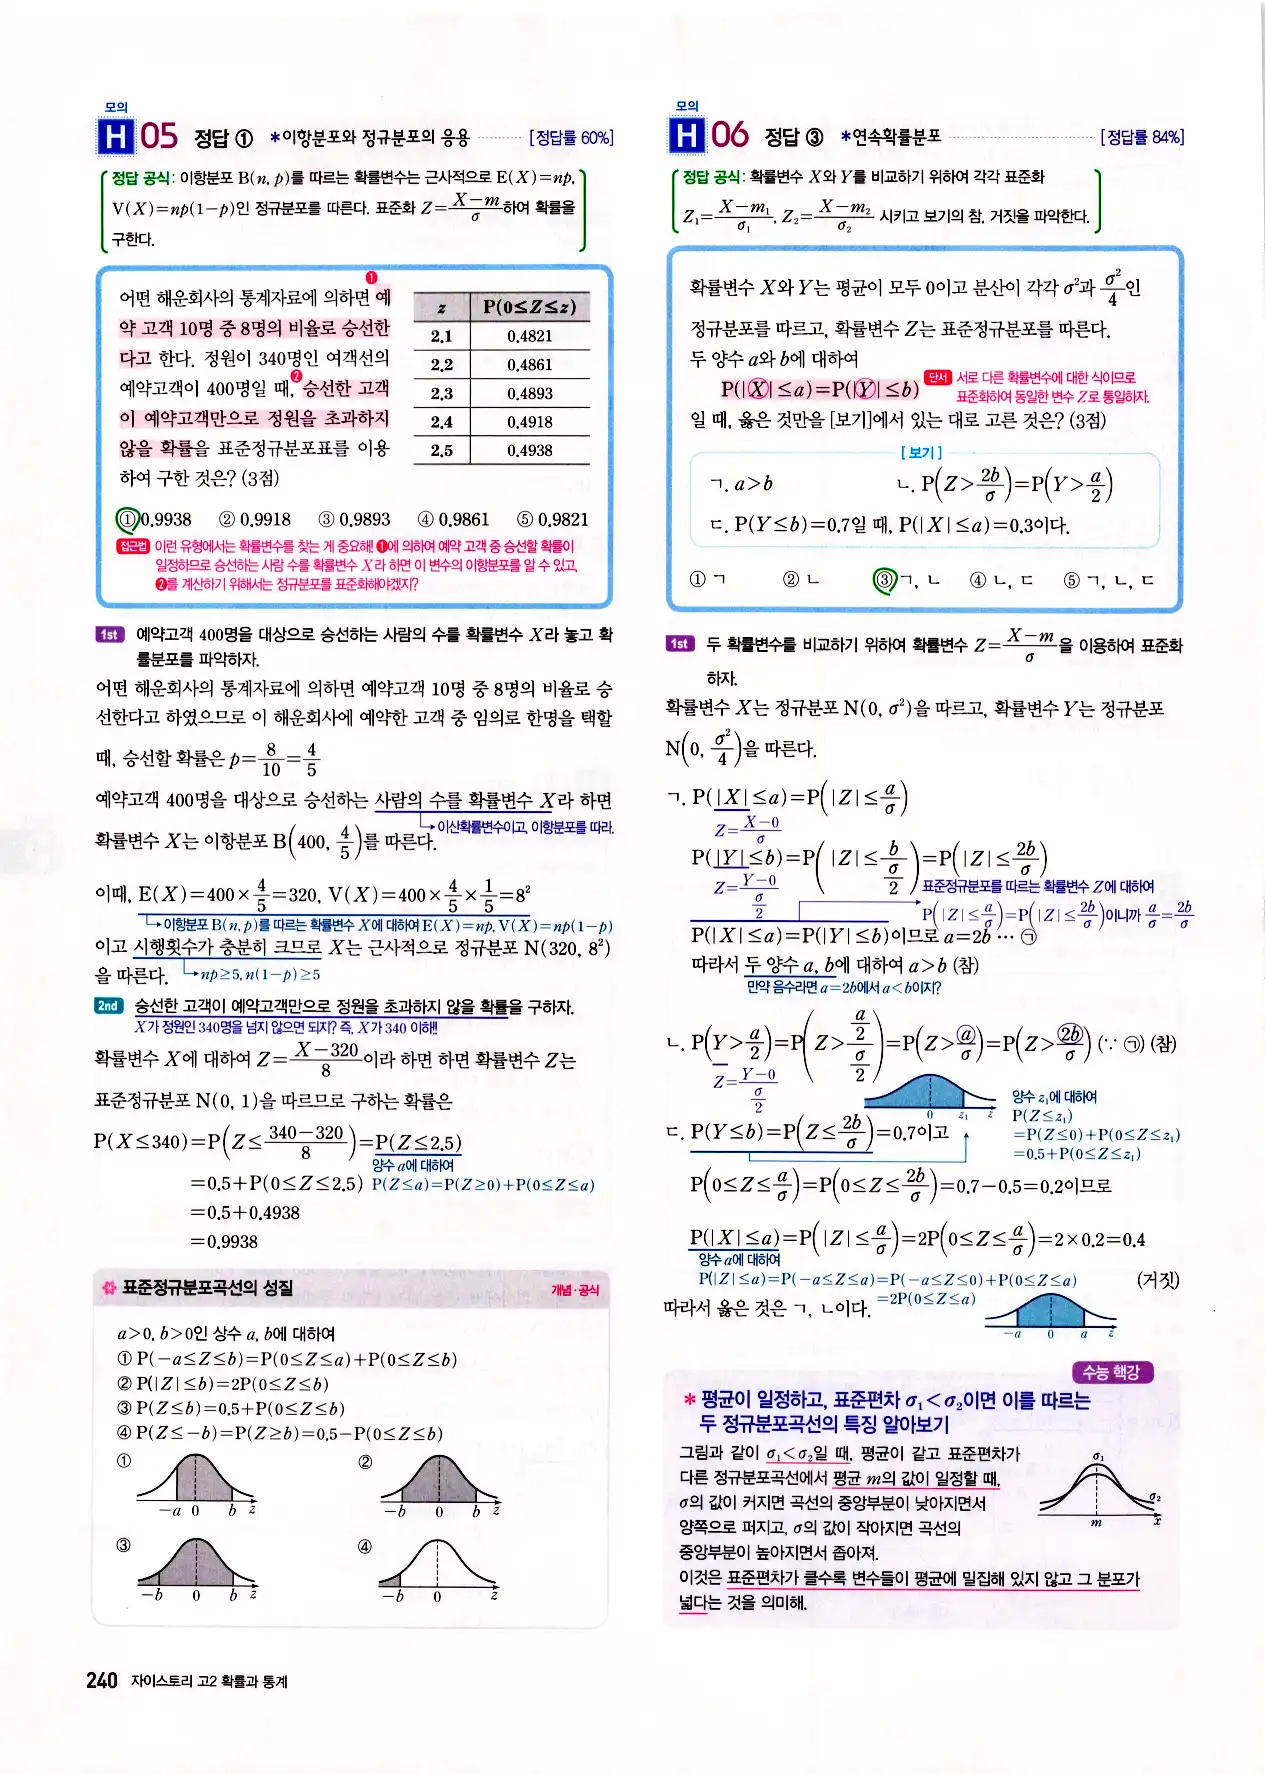 모의
H 05 정답 ① *이항분포와 정규분포의 응용 [정답률 60%]
정답 공식: 이항분포 B(n, p)를 따르는 확률변수는 근사적으로 E(X)=np,
V(X)=np(1-p)인 정규분포를 따른다. 표준화 Z=(X-m)/σ하여 확률을
구한다.
❶
어떤 해운회사의 통계자료에 의하면 예
약 고객 10명 중 8명의 비율로 승선한
다고 한다. 정원이 340명인 여객선의
예약고객이 400명일 때, ❷승선한 고객
이 예약고객만으로 정원을 초과하지
않을 확률을 표준정규분포표를 이용
하여 구한 것은? (3점)
z P(0≤Z≤z)
2.1 0.4821
2.2 0.4861
2.3 0.4893
2.4 0.4918
2.5 0.4938
① 0.9938 ② 0.9918 ③ 0.9893 ④ 0.9861 ⑤ 0.9821
접근법 이런 유형에서는 확률변수를 찾는 게 중요해! ❶에 의하여 예약 고객 중 승선할 확률이
일정하므로 승선하는 사람 수를 확률변수 X라 하면 이 변수의 이항분포를 알 수 있고,
❷를 계산하기 위해서는 정규분포를 표준화해야겠지?
1st 예약고객 400명을 대상으로 승선하는 사람의 수를 확률변수 X라 놓고 확
률분포를 파악하자.
어떤 해운회사의 통계자료에 의하면 예약고객 10명 중 8명의 비율로 승
선한다고 하였으므로 이 해운회사에 예약한 고객 중 임의로 한명을 택할
때, 승선할 확률은 p=8/10=4/5
예약고객 400명을 대상으로 승선하는 사람의 수를 확률변수 X라 하면
이산확률변수이고, 이항분포를 따라.
확률변수 X는 이항분포 B(400, 4/5)를 따른다.
이때, E(X)=400×4/5=320, V(X)=400×4/5×1/5=8²
이항분포 B(n, p)를 따르는 확률변수 X에 대하여 E(X)=np, V(X)=np(1-p)
이고 시행횟수가 충분히 크므로 X는 근사적으로 정규분포 N(320, 8²)
을 따른다. np≥5, n(1-p)≥5
2nd 승선한 고객이 예약고객만으로 정원을 초과하지 않을 확률을 구하자.
X가 정원인 340명을 넘지 않으면 되지? 즉, X가 340 이하!!
확률변수 X에 대하여 Z=(X-320)/8이라 하면 하면 확률변수 Z는
표준정규분포 N(0, 1)을 따르므로 구하는 확률은
P(X≤340)=P(Z≤(340-320)/8)=P(Z≤2.5)
양수 a에 대하여
=0.5+P(0≤Z≤2.5) P(Z≤a)=P(Z≥0)+P(0≤Z≤a)
=0.5+0.4938
=0.9938
표준정규분포곡선의 성질 개념·공식
a>0, b>0인 상수 a, b에 대하여
① P(-a≤Z≤b)=P(0≤Z≤a)+P(0≤Z≤b)
② P(|Z|≤b)=2P(0≤Z≤b)
③ P(Z≤b)=0.5+P(0≤Z≤b)
④ P(Z≤-b)=P(Z≥b)=0.5-P(0≤Z≤b)
① ②
-a 0 b z -b 0 b z
③ ④
-b 0 b z -b 0 z
240 자이스토리 고2 확률과 통계
모의
H 06 정답 ③ *연속확률분포 [정답률 84%]
정답 공식: 확률변수 X와 Y를 비교하기 위하여 각각 표준화
Z₁=(X-m₁)/σ₁, Z₂=(X-m₂)/σ₂ 시키고 보기의 참, 거짓을 파악한다.
확률변수 X와 Y는 평균이 모두 0이고 분산이 각각 σ²과 σ²/4인
정규분포를 따르고, 확률변수 Z는 표준정규분포를 따른다.
두 양수 a와 b에 대하여
P(|X|≤a)=P(|Y|≤b) 단서 서로 다른 확률변수에 대한 식이므로
표준화하여 동일한 변수 Z로 통일하자.
일 때, 옳은 것만을 [보기]에서 있는 대로 고른 것은? (3점)
[보기]
ㄱ. a>b ㄴ. P(Z>2b/σ)=P(Y>a/2)
ㄷ. P(Y≤b)=0.7일 때, P(|X|≤a)=0.3이다.
① ㄱ ② ㄴ ③ ㄱ, ㄴ ④ ㄴ, ㄷ ⑤ ㄱ, ㄴ, ㄷ
1st 두 확률변수를 비교하기 위하여 확률변수 Z=(X-m)/σ을 이용하여 표준화
하자.
확률변수 X는 정규분포 N(0, σ²)을 따르고, 확률변수 Y는 정규분포
N(0, σ²/4)을 따른다.
ㄱ. P(|X|≤a)=P(|Z|≤a/σ)
Z=(X-0)/σ
P(|Y|≤b)=P(|Z|≤b/(σ/2))=P(|Z|≤2b/σ)
Z=(Y-0)/(σ/2) 표준정규분포를 따르는 확률변수 Z에 대하여
P(|Z|≤a/σ)=P(|Z|≤2b/σ)이니까 a/σ=2b/σ
P(|X|≤a)=P(|Y|≤b)이므로 a=2b ··· ㉠
따라서 두 양수 a, b에 대하여 a>b (참)
만약 음수라면 a=2b에서 a<b이지?
ㄴ. P(Y>a/2)=P(Z>(a/2)/(σ/2))=P(Z>a/σ)=P(Z>2b/σ) (∵ ㉠) (참)
Z=(Y-0)/(σ/2)
0 z₁ z
양수 z₁에 대하여
P(Z≤z₁)
=P(Z≤0)+P(0≤Z≤z₁)
=0.5+P(0≤Z≤z₁)
ㄷ. P(Y≤b)=P(Z≤2b/σ)=0.7이고
P(0≤Z≤a/σ)=P(0≤Z≤2b/σ)=0.7-0.5=0.2이므로
P(|X|≤a)=P(|Z|≤a/σ)=2P(0≤Z≤a/σ)=2×0.2=0.4
양수 a에 대하여
P(|Z|≤a)=P(-a≤Z≤a)=P(-a≤Z≤0)+P(0≤Z≤a) (거짓)
=2P(0≤Z≤a)
따라서 옳은 것은 ㄱ, ㄴ이다.
-a 0 a z
수능 핵강
* 평균이 일정하고, 표준편차 σ₁<σ₂이면 이를 따르는
두 정규분포곡선의 특징 알아보기
그림과 같이 σ₁<σ₂일 때, 평균이 같고 표준편차가
다른 정규분포곡선에서 평균 m의 값이 일정할 때,
σ의 값이 커지면 곡선의 중앙부분이 낮아지면서
양쪽으로 퍼지고, σ의 값이 작아지면 곡선의
중앙부분이 높아지면서 좁아져.
이것은 표준편차가 클수록 변수들이 평균에 밀집해 있지 않고 그 분포가
넓다는 것을 의미해.
σ₁
σ₂
m x